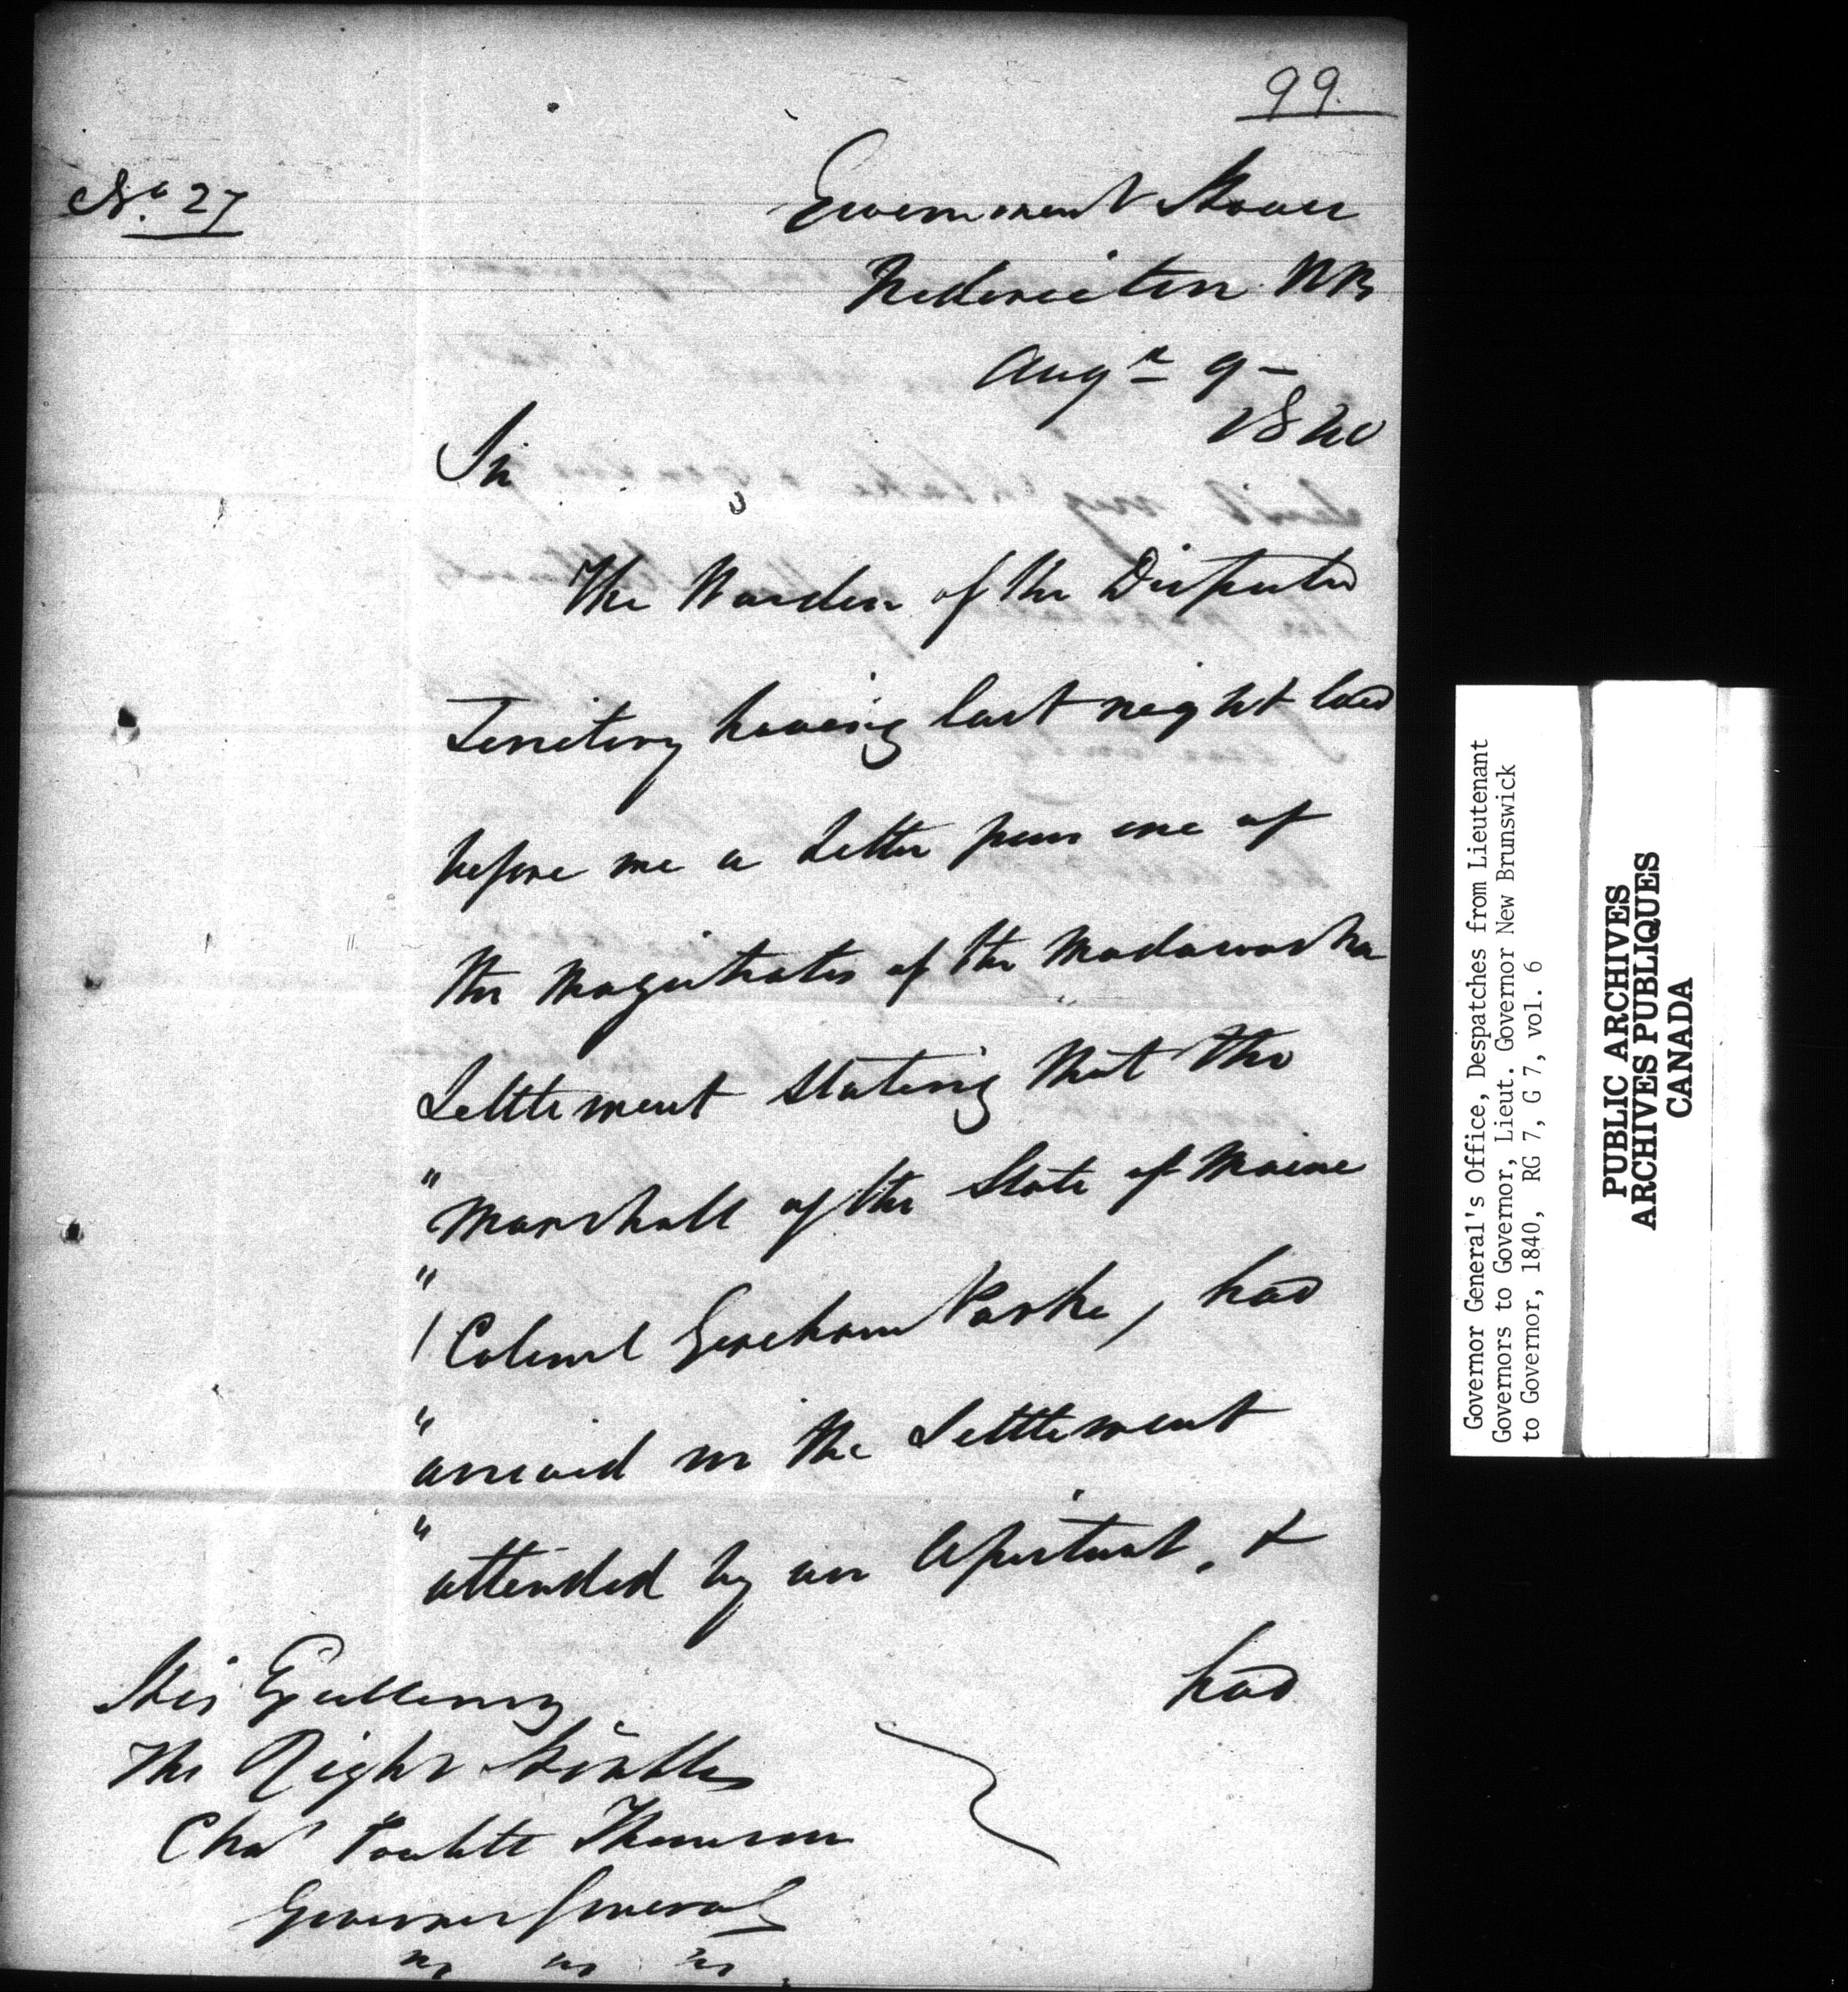 99.
No. 27
Government House
Fredericton NB
Augst 9 –
1840
Sir
The Warden of the Disputed
Territory having last night laid
before me a letter from one of
the Magistrates of the Madawaska
Settlement stating that the
"Marshall of the State of Maine
"(Colonel Gorham Parke) had
"arrived in the Settlement
"attended by an Assistant, &
had
His Excellency
The Right Honble
Chas Poulett Thomson
Governor General
&c &c &c
Governor General's Office, Despatches from Lieutenant
Governors to Governor, Lieut. Governor New Brunswick
to Governor, 1840, RG 7, G 7, vol. 6
PUBLIC ARCHIVES
ARCHIVES PUBLIQUES
CANADA